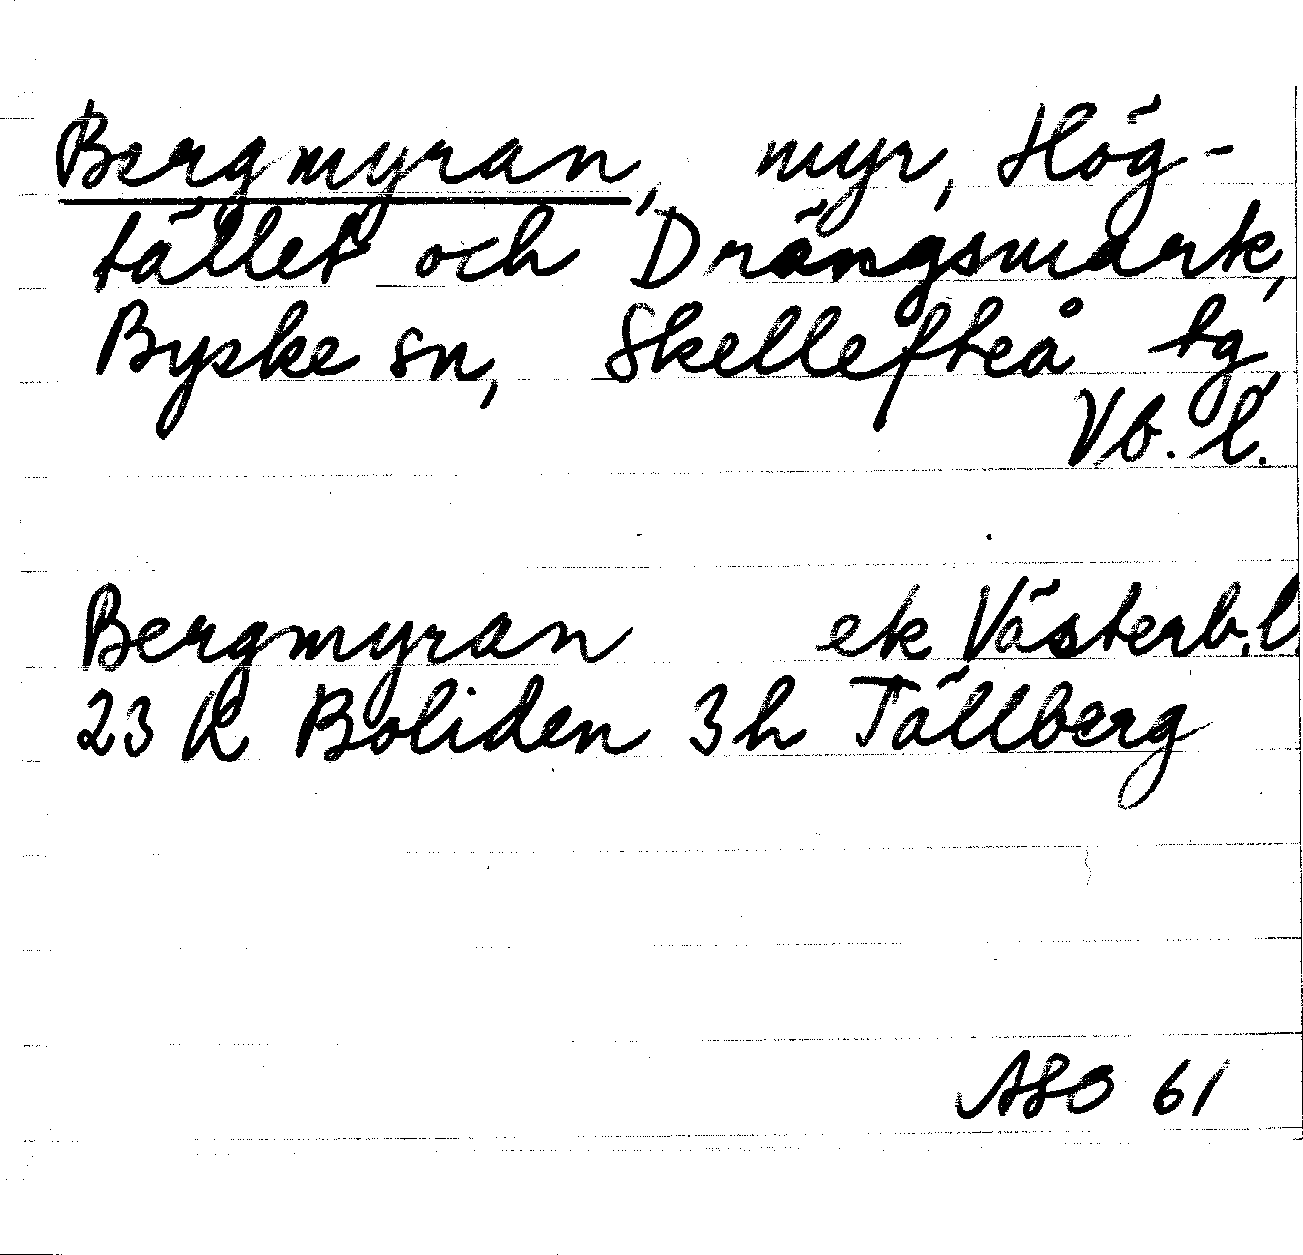 Bergmyran, myr, Hög-
tället och Drängsmark,
Byske sn, Skellefteå tg,
Vb. l.
Bergmyran ek Västerb. l.
23 K Boliden 3h Tällberg
ASO 61